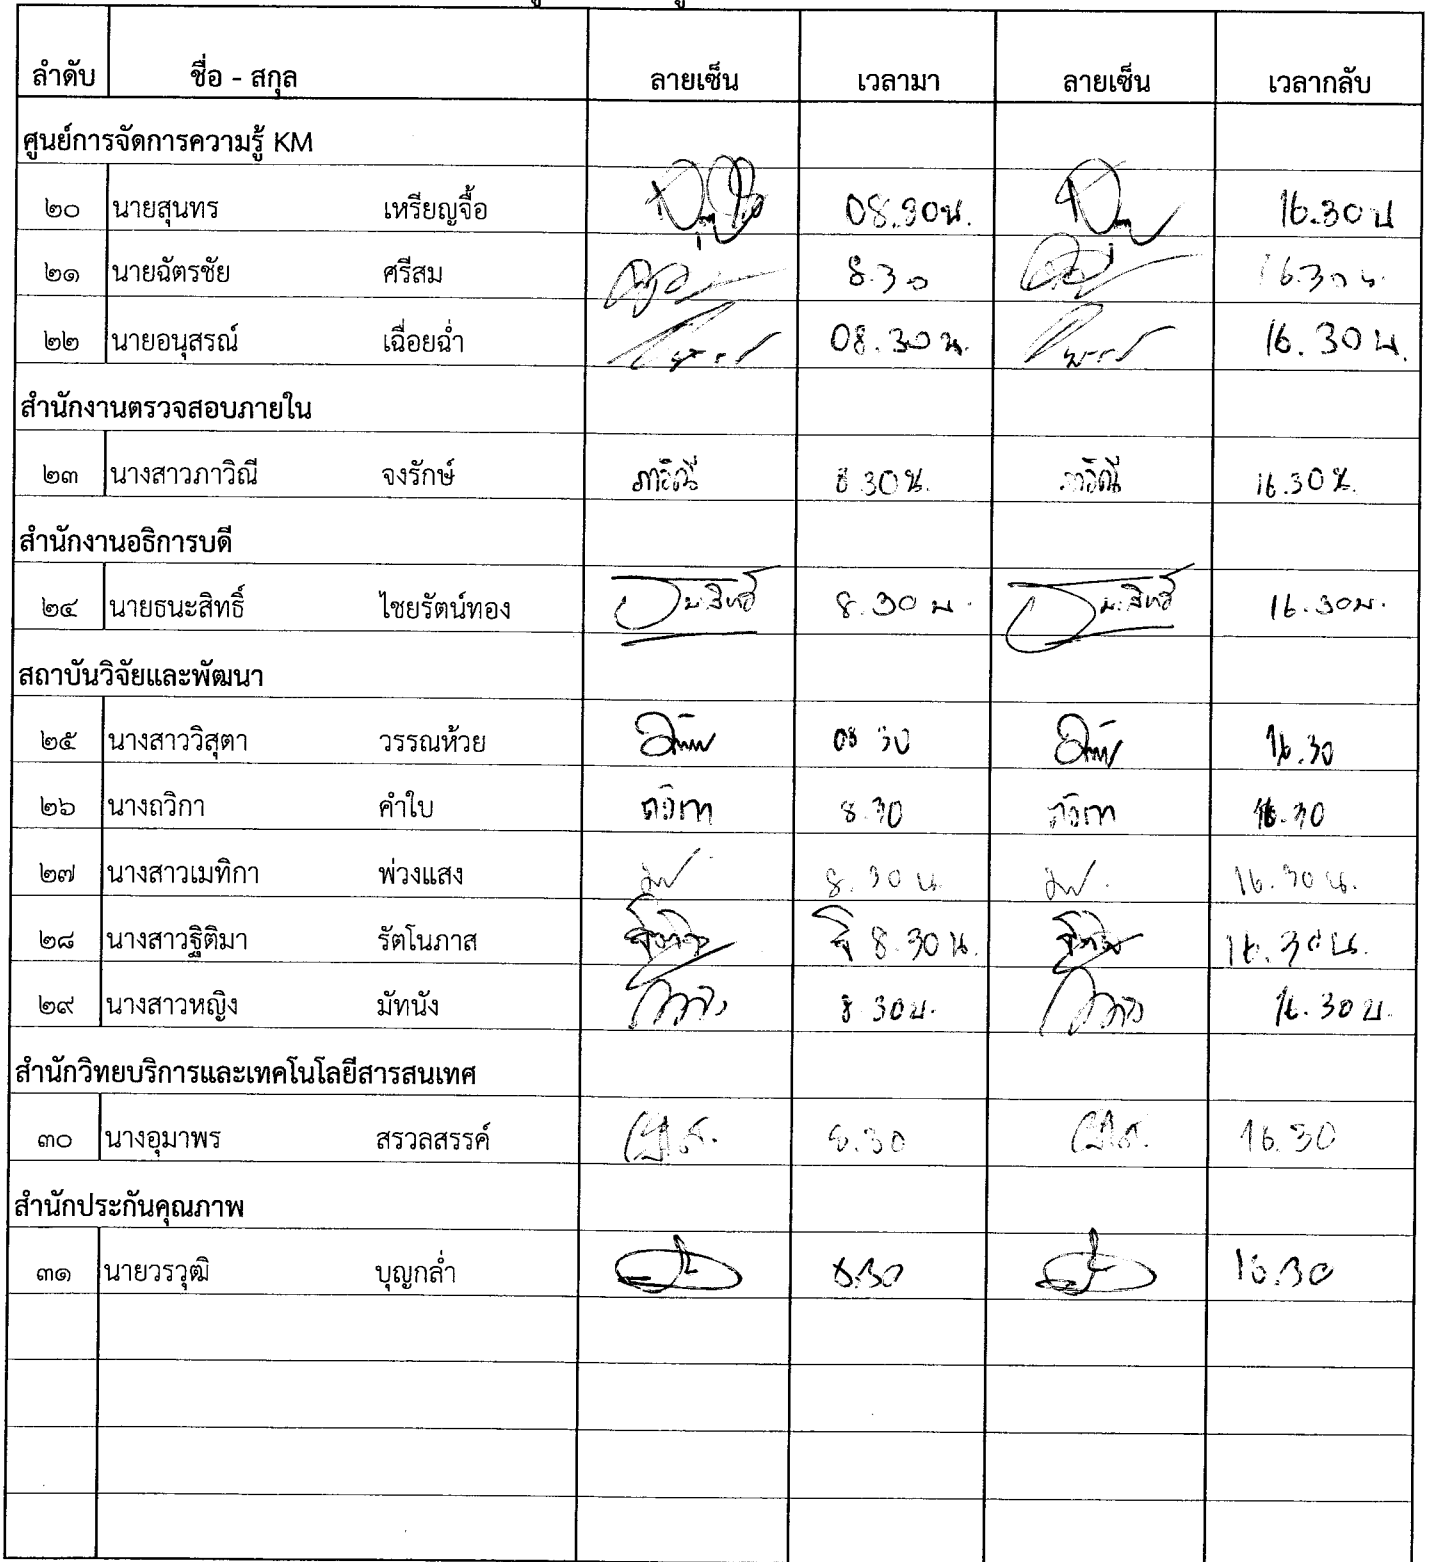 ลำดับ ชื่อ - สกุล ลายเซ็น เวลามา ลายเซ็น เวลากลับ
ศูนย์การจัดการความรู้ KM
๒๐ นายสุนทร เหรียญจื้อ 08.30น. 16.30น
๒๑ นายฉัตรชัย ศรีสม 8.30 16.30 น.
๒๒ นายอนุสรณ์ เฉื่อยฉ่ำ 08.30 น. 16.30 น.
สำนักงานตรวจสอบภายใน
๒๓ นางสาวภาวิณี จงรักษ์ ภาวิณี 8.30 น. ภาวิณี 16.30 น.
สำนักงานอธิการบดี
๒๔ นายธนะสิทธิ์ ไชยรัตน์ทอง 8.30 น. 16.30น.
สถาบันวิจัยและพัฒนา
๒๕ นางสาววิสุตา วรรณห้วย 08 30 16.30
๒๖ นางถวิกา คำใบ ถวิกา 8.30 ถวิกา 16.30
๒๗ นางสาวเมทิกา พ่วงแสง 8.30 น. 16.30 น.
๒๘ นางสาวฐิติมา รัตโนภาส 8.30 น. 16.30 น.
๒๙ นางสาวหญิง มัทนัง 8 30น. 16.30 น.
สำนักวิทยบริการและเทคโนโลยีสารสนเทศ
๓๐ นางอุมาพร สรวลสรรค์ 8.30 16.30
สำนักประกันคุณภาพ
๓๑ นายวรวุฒิ บุญกล่ำ 8.30 16.30